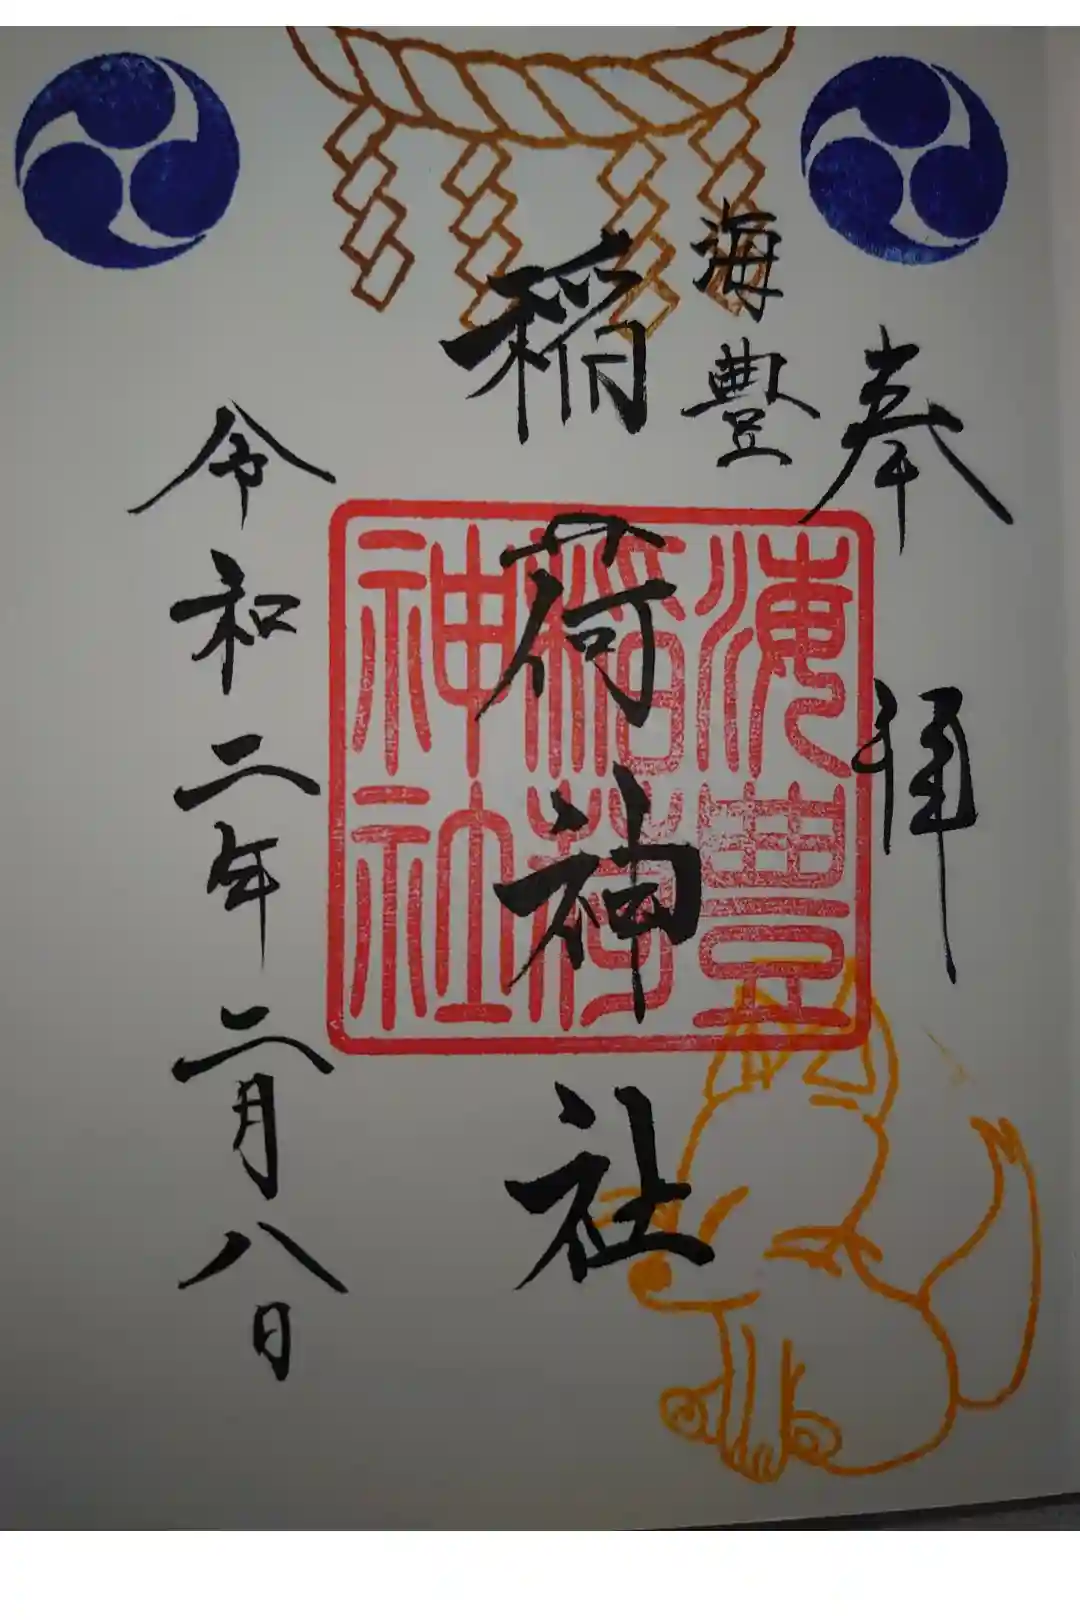 奉拝
海豊
稲荷神社
海豊
稲荷
神社
令和二年二月八日